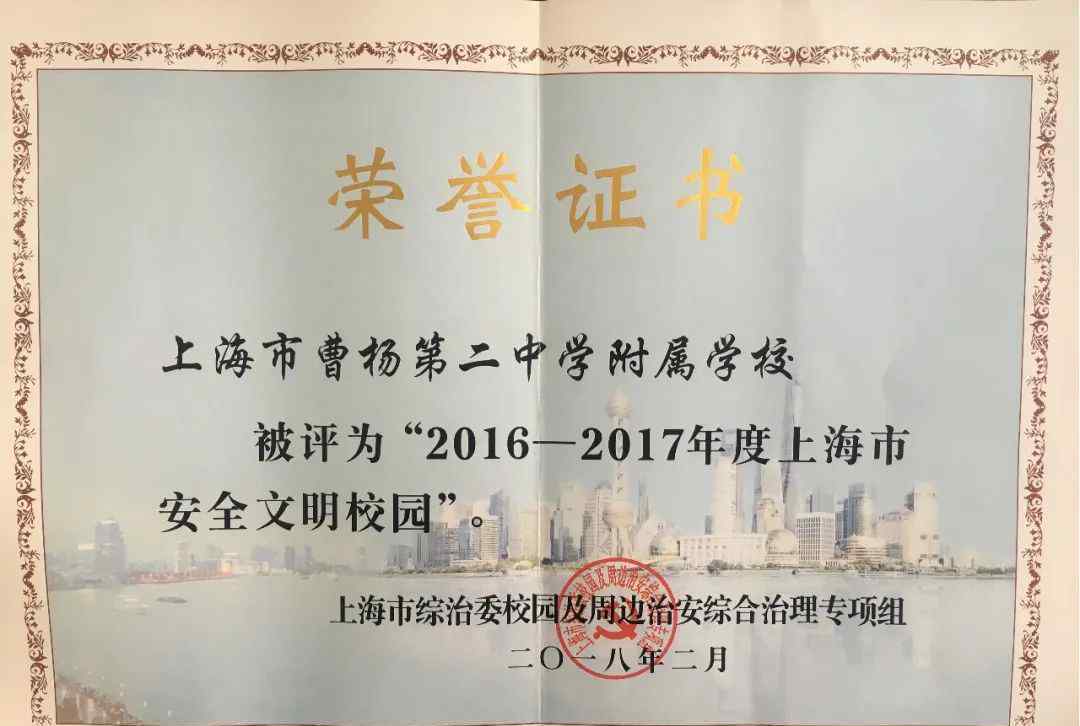 荣誉证书
上海市曹杨第二中学附属学校
被评为“2016—2017年度上海市
安全文明校园”。
上海市综治委校园及周边治安综合治理专项组
二〇一八年二月